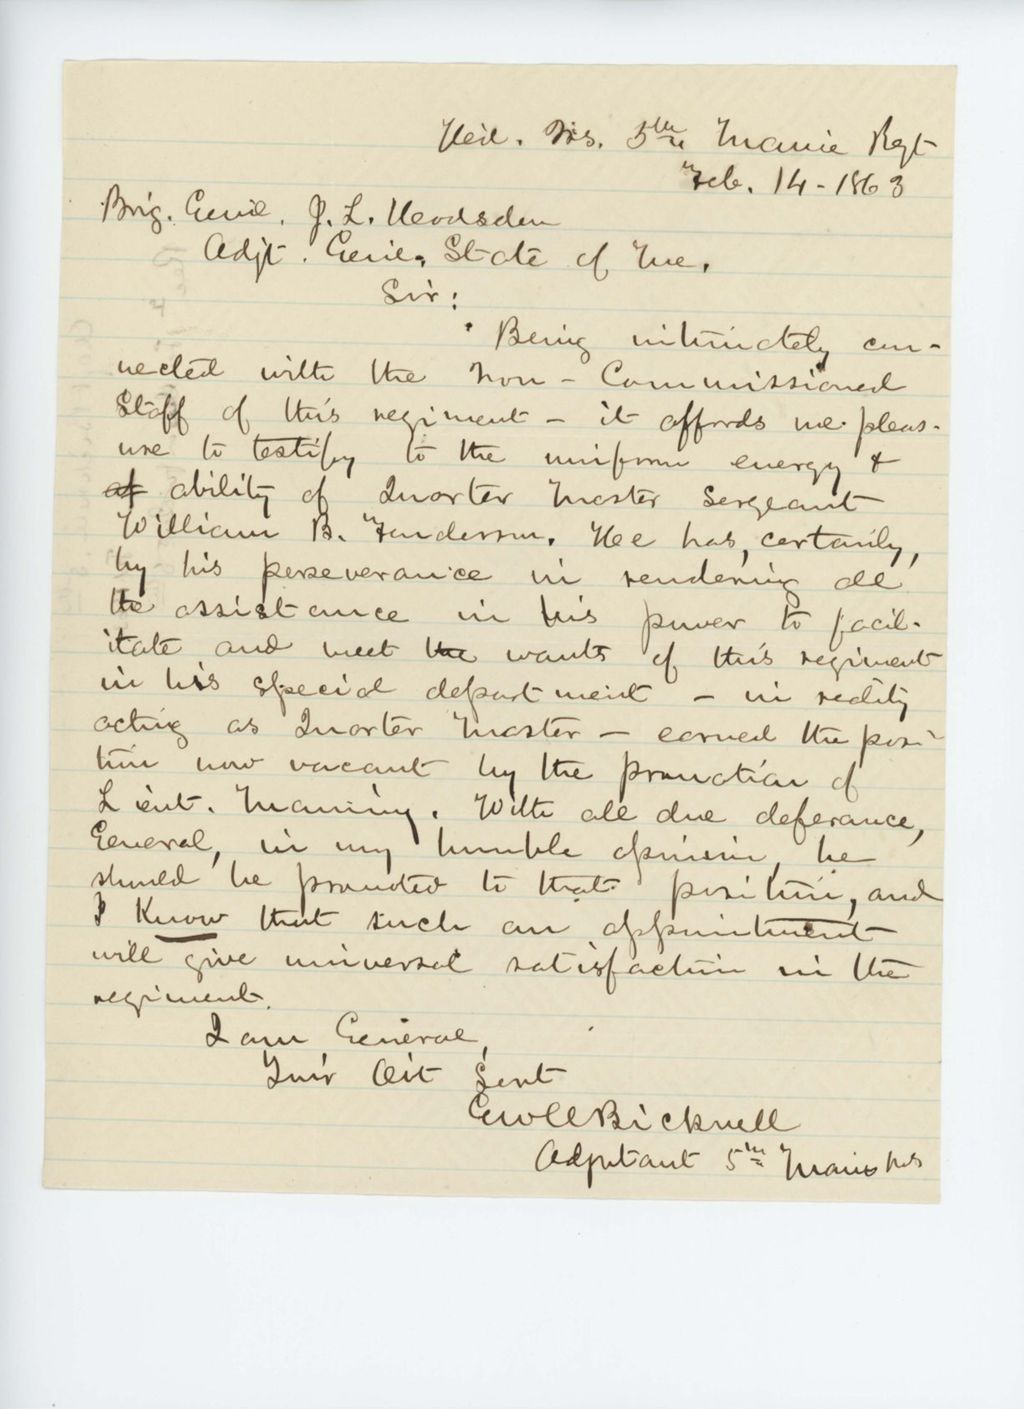 Hed. Qrs. 5th Maine Regt
Feb. 14 - 1863
Brig. Genl. J. L. Hodsdon
Adjt. Genl. State of Me.
Sir:
Being intimately con-
nected with the Non-Commissioned
Staff of this regiment - it affords me pleas-
ure to testify to the uniform energy &
ability of Quarter Master Sergeant
William B. Fenderson. He has, certainly,
by his perseverance in rendering all
the assistance in his power to facil-
itate and meet the wants of this regiment
in his special department - in reality
acting as Quarter Master - earned the posi-
tion now vacant by the promotion of
Lieut. Manning. With all due deferance,
General, in my humble opinion, he
should be promoted to that position, and
I Know that such an appointment
will give universal satisfaction in the
regiment.
I am General,
Your Obt Servt
Geo W Bicknell
Adjutant 5th Maine Vols